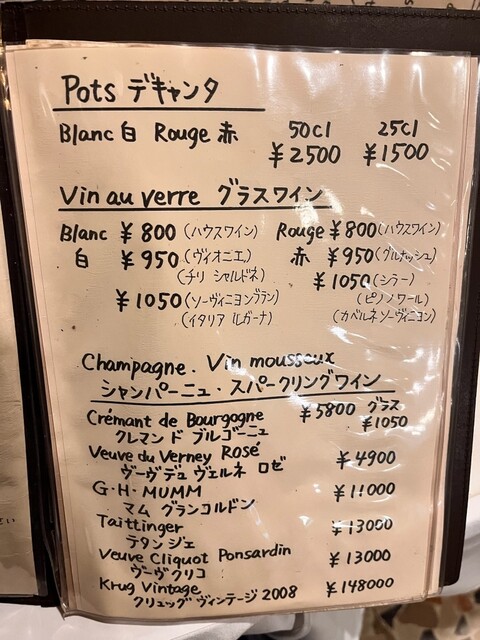 Pots デキャンタ
50cl 25cl
Blanc 白 Rouge 赤 ¥2500 ¥1500
Vin au verre グラスワイン
Blanc ¥800 (ハウスワイン) Rouge ¥800 (ハウスワイン)
白 ¥950 (ヴィオニエ、 赤 ¥950 (グルナッシュ)
(チリ シャルドネ) ¥1050 (シラー)
¥1050 (ソーヴィニヨンブラン) (ピノノワール)
(イタリア ルガーナ) (カベルネソーヴィニヨン)
Champagne. Vin mousseux
シャンパーニュ・スパークリングワイン
Crémant de Bourgogne ¥5800 グラス
クレマン ド ブルゴーニュ ¥1050
Veuve du Verney Rosé ¥4900
ヴーヴデュ ヴェルネ ロゼ
G・H・MUMM ¥11000
マム グランコルドン
Taittinger ¥13000
テタンジェ
Veuve Cliquot Ponsardin ¥13000
ヴーヴクリコ
Krug Vintage ¥148000
クリュッグ ヴィンテージ 2008